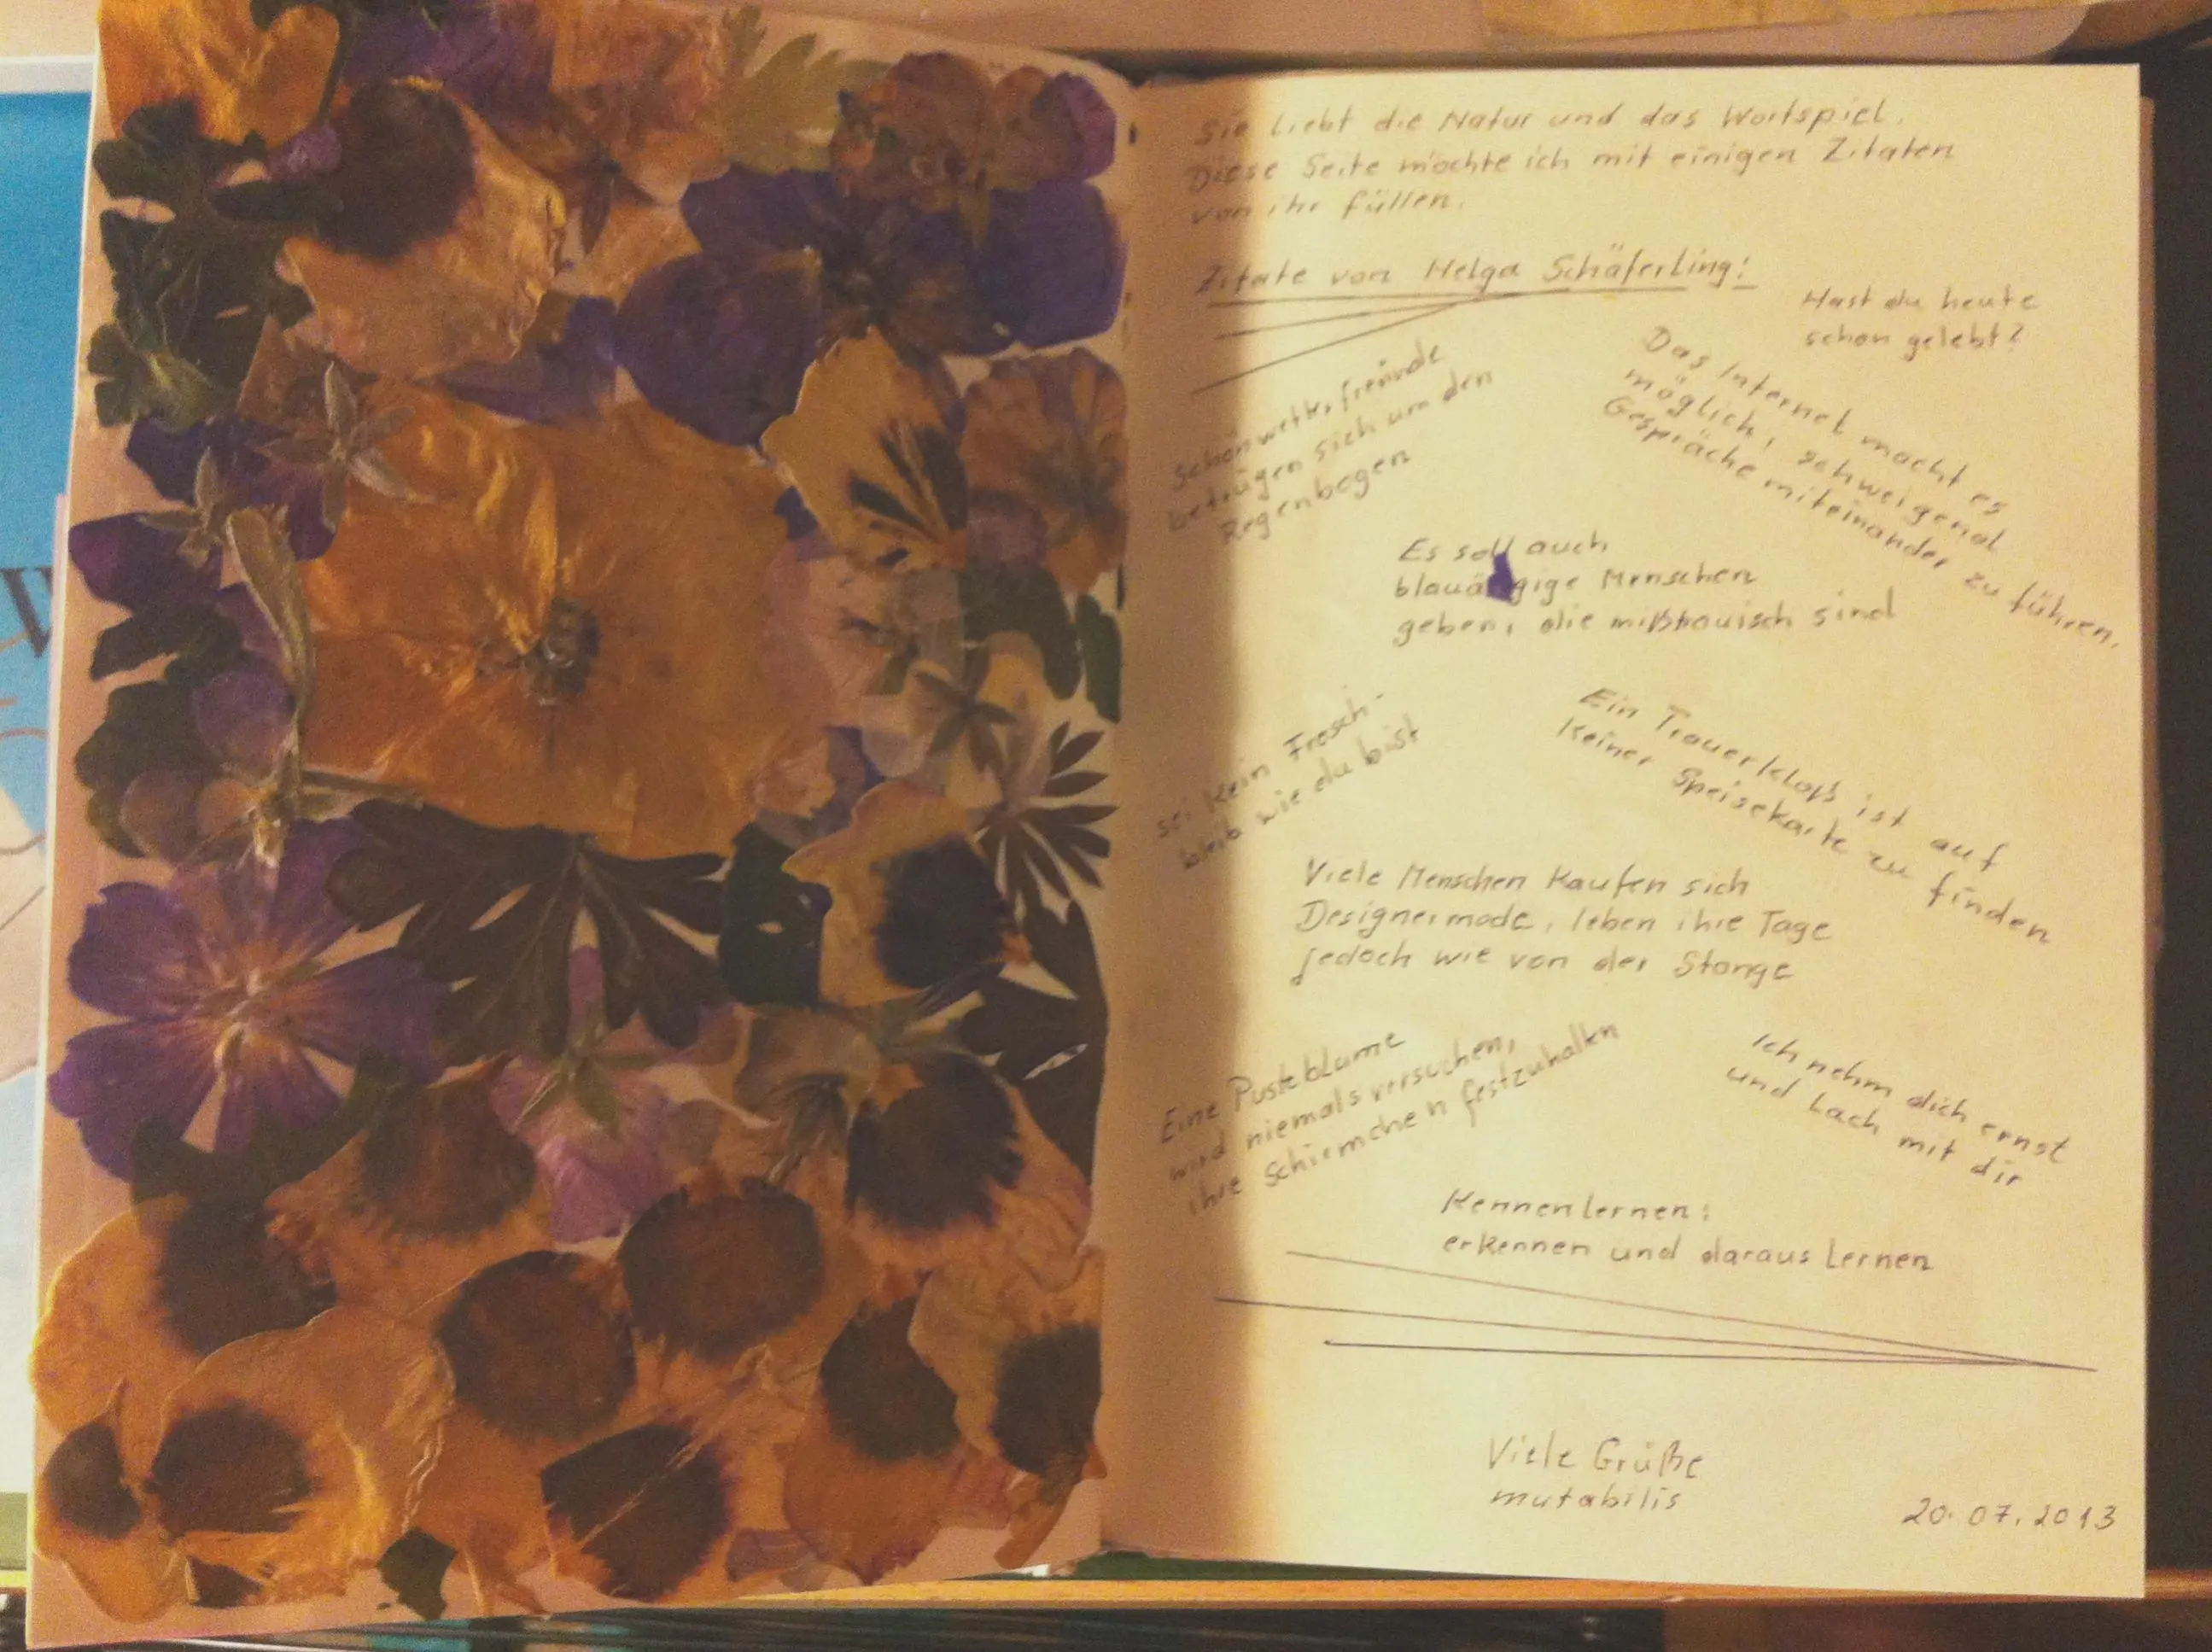 Sie liebt die Natur und das Wortspiel.
Diese Seite möchte ich mit einigen Zitaten
von ihr füllen.
Zitate von Helga Schäferling:
Hast du heute
schon gelebt?
Schönwetterfreunde
betrügen sich um den
Regenbogen
Das Internet macht es
möglich, schweigend
Gespräche miteinander zu führen.
Es soll auch
blauäugige Menschen
geben, die mißtrauisch sind
sei kein Frosch -
bleib wie du bist
Ein Trauerkloß ist auf
keiner Speisekarte zu finden
Viele Menschen kaufen sich
Designermode, leben ihre Tage
jedoch wie von der Stange
Eine Pusteblume
wird niemals versuchen,
ihre Schirmchen festzuhalten
Ich nehm dich ernst
und lach mit dir
Kennenlernen:
erkennen und daraus lernen
Viele Grüße
mutabilis
20.07.2013